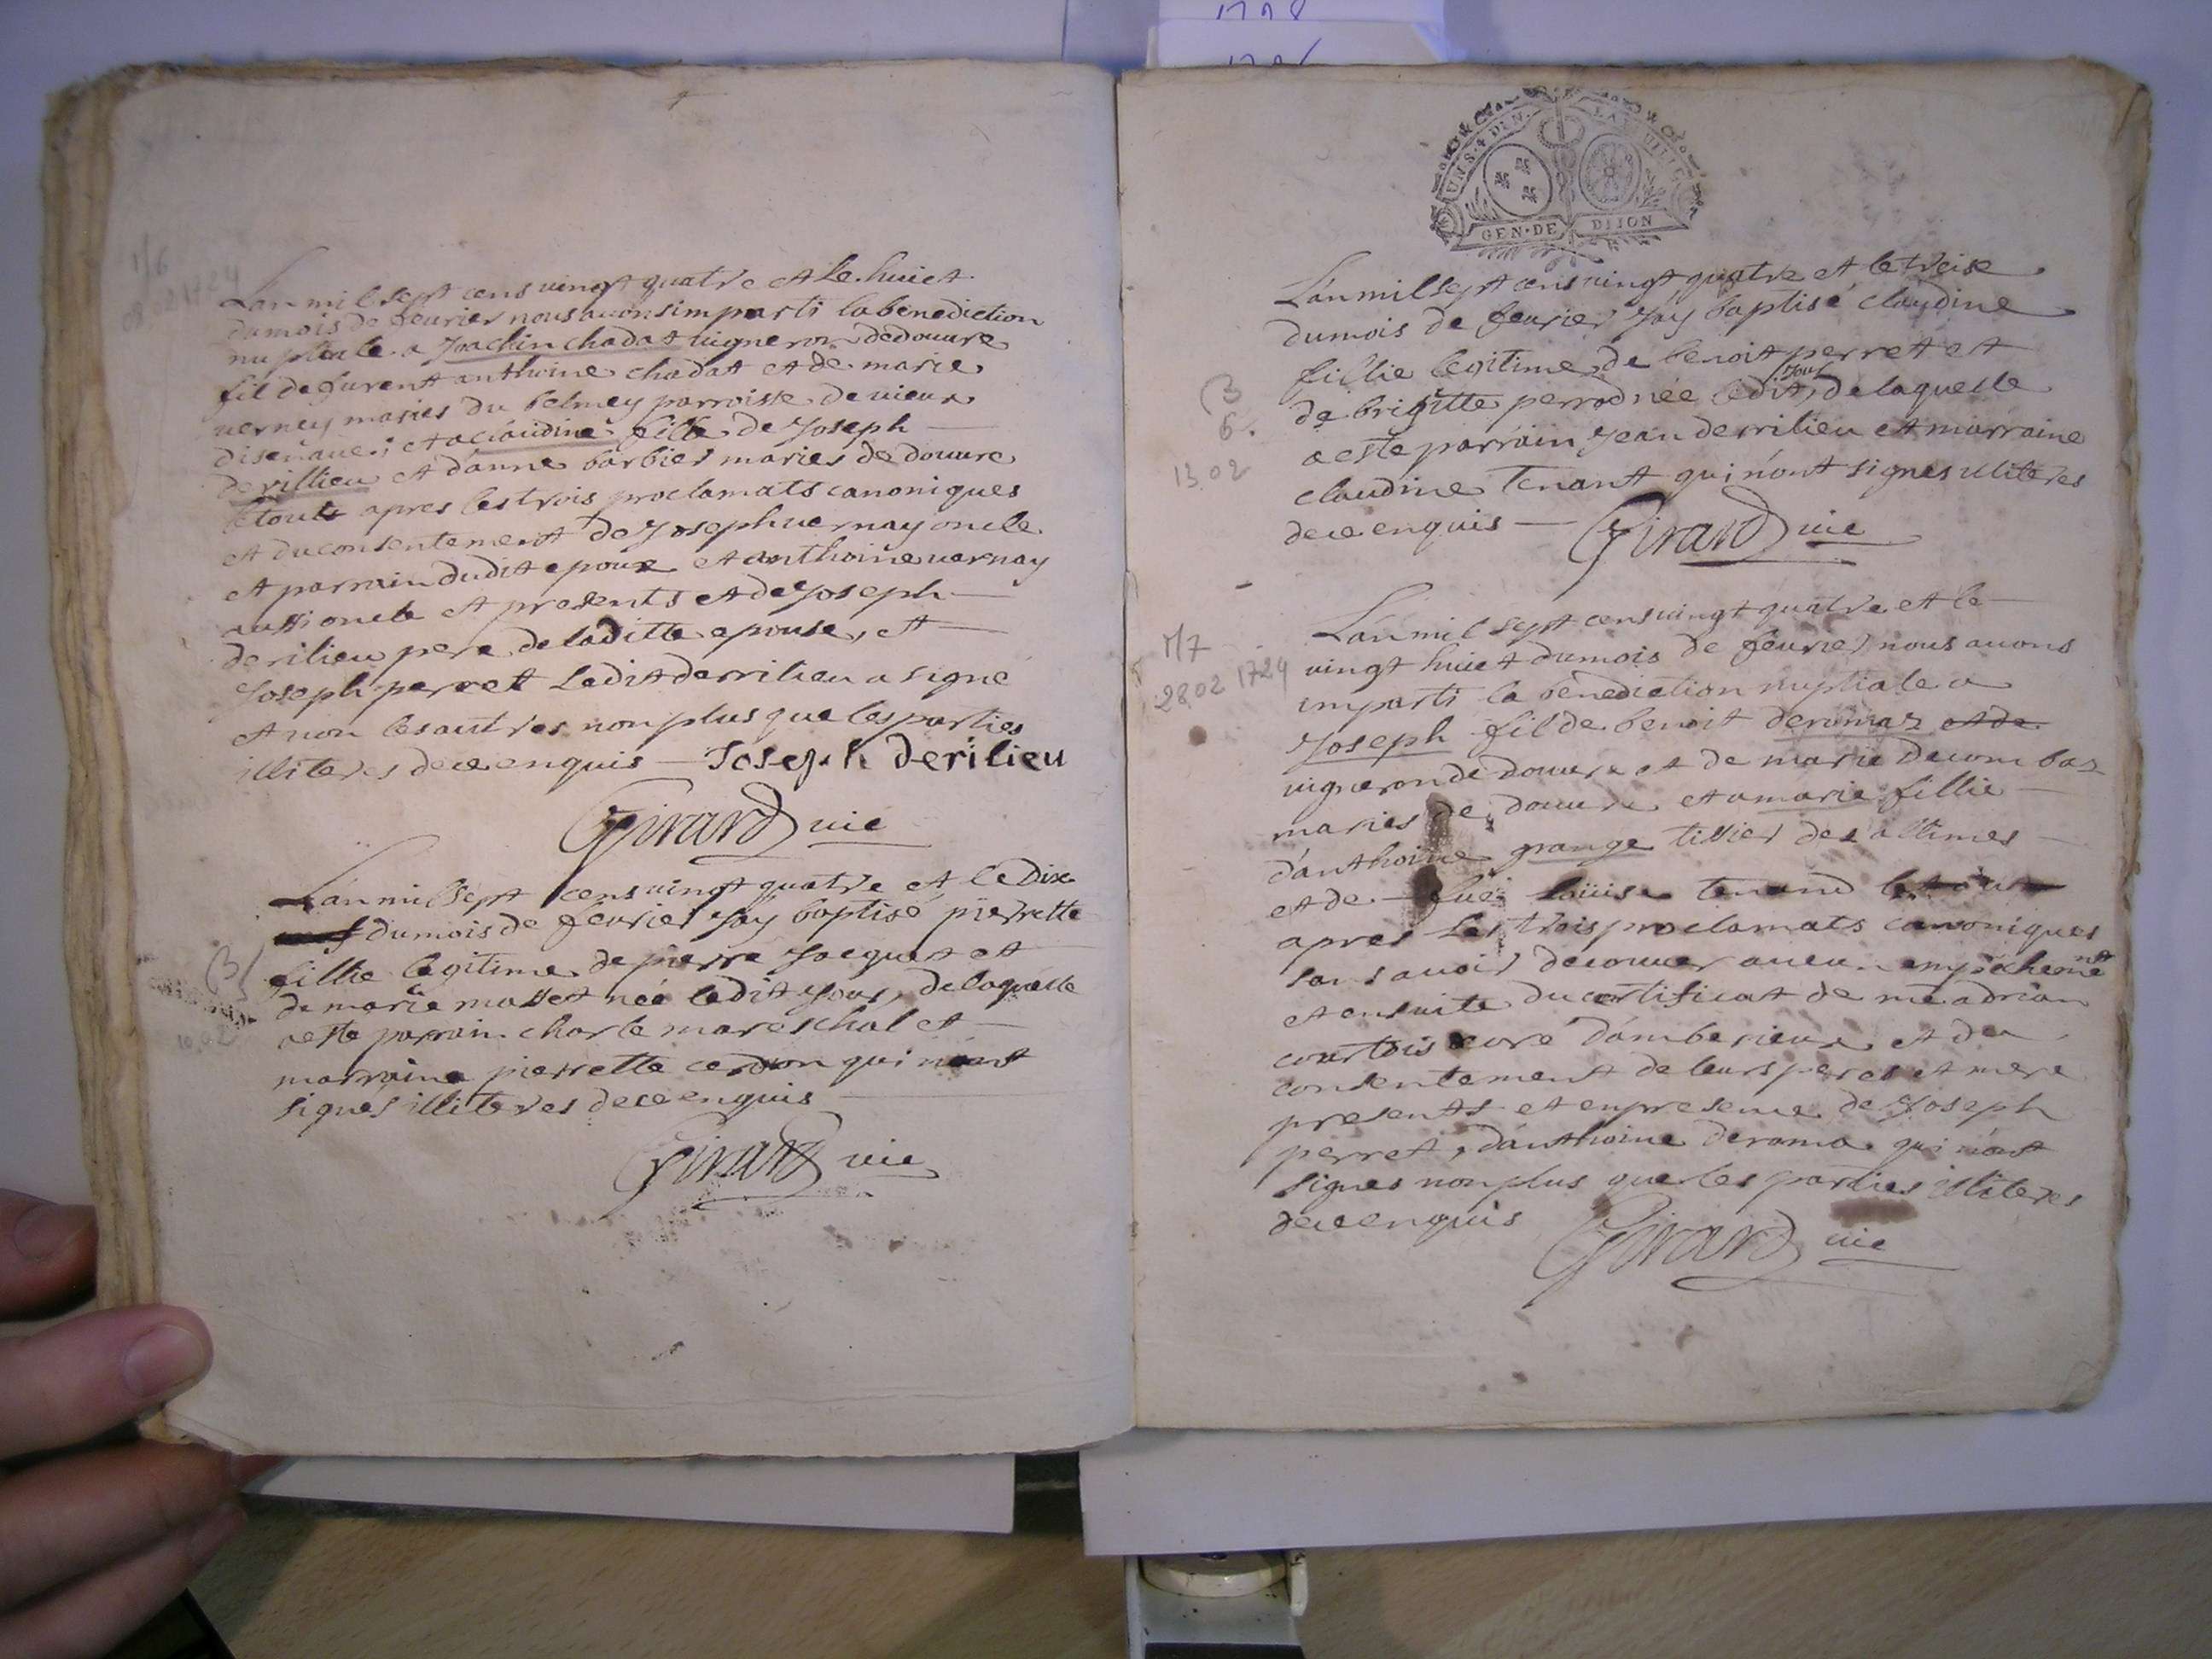 Lan mil sept cens vingt quatre et le huict
du mois de feurier nous auons imparti la benediction
nuptiale a Joachin chadat uigneron de douure
fil de furent anthoine chadat et de marie
uerney maries du belmey parroisse de uieux
disenaue; et a claudine fille de Joseph
derillieu et d'anne barbier maries de douure
le tout apres les trois proclamats canoniques
et du consentement de Joseph uernay oncle
et parrain dudit epoux et anthoine uernay
aussi oncle et presents et de Joseph
derilieu pere de laditte epouse, et
Joseph perret Ledit derrilieu a signe
et non les autres non plus que les parties
illiteres de ce enquis — Joseph derilieu
Girard uic
L'an mil sept cens uingt quatre et le Dix
du mois de feurier J'ay baptisé pierrette
fillie legitime de pierre Jacquet et
de marie masset née ledit Jour, de laquelle
a este parrain charle mareschal et
marraine pierrette cerdon qui n'ont
signes illiteres de ce enquis
Girard uic
1718
M/6
08.02 1724
B/
10.02
UN S. 4 DEN.
LA FEUILLE
GEN·DE DIJON
L'an mil sept cens uingt quatre et le treise
du mois de feurier J'ay baptisé claudine
fillie legitime de benoit perret et
de brigitte perrod née ledit Jour de laquelle
a este parrain Jean derrilieu et marraine
claudine Tenant qui n'ont signes illiteres
de ce enquis — Girard uic
B
6.
13.02
L'an mil sept cens uingt quatre et le
uingt huict du mois de feurier nous auons
imparti la benediction nuptiale a
Joseph fil de benoit deromaz et de
uigneron de douure et de marie decombaz
maries de douure et a marie fillie
d'anthoine grange tissier des allimes
et de feüe loüise tenand le tout
apres les trois proclamats canoniques
sans auoir decouuer aucun empechement
et ensuite du certificat de me adrian
courtois curé d'amberieux et du
consentement de leurs peres et mere
presents et en presence de Joseph
perret, d'anthoine deroma qui n'ont
signes non plus que les parties illiteres
de ce enquis Girard uic
M/7
28.02 1724